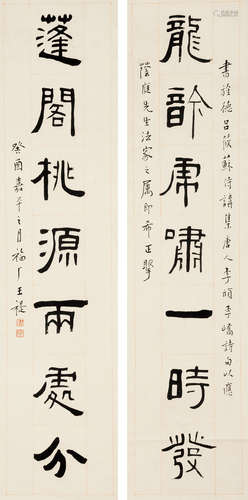 書旌德呂筱蘇侍講集唐人李頎李嶠詩句以應
龍䪩虎嘯一時發
蔭庭先生法家之属即希正
蓬閣桃源兩處分
癸酉嘉平之月福厂王禔